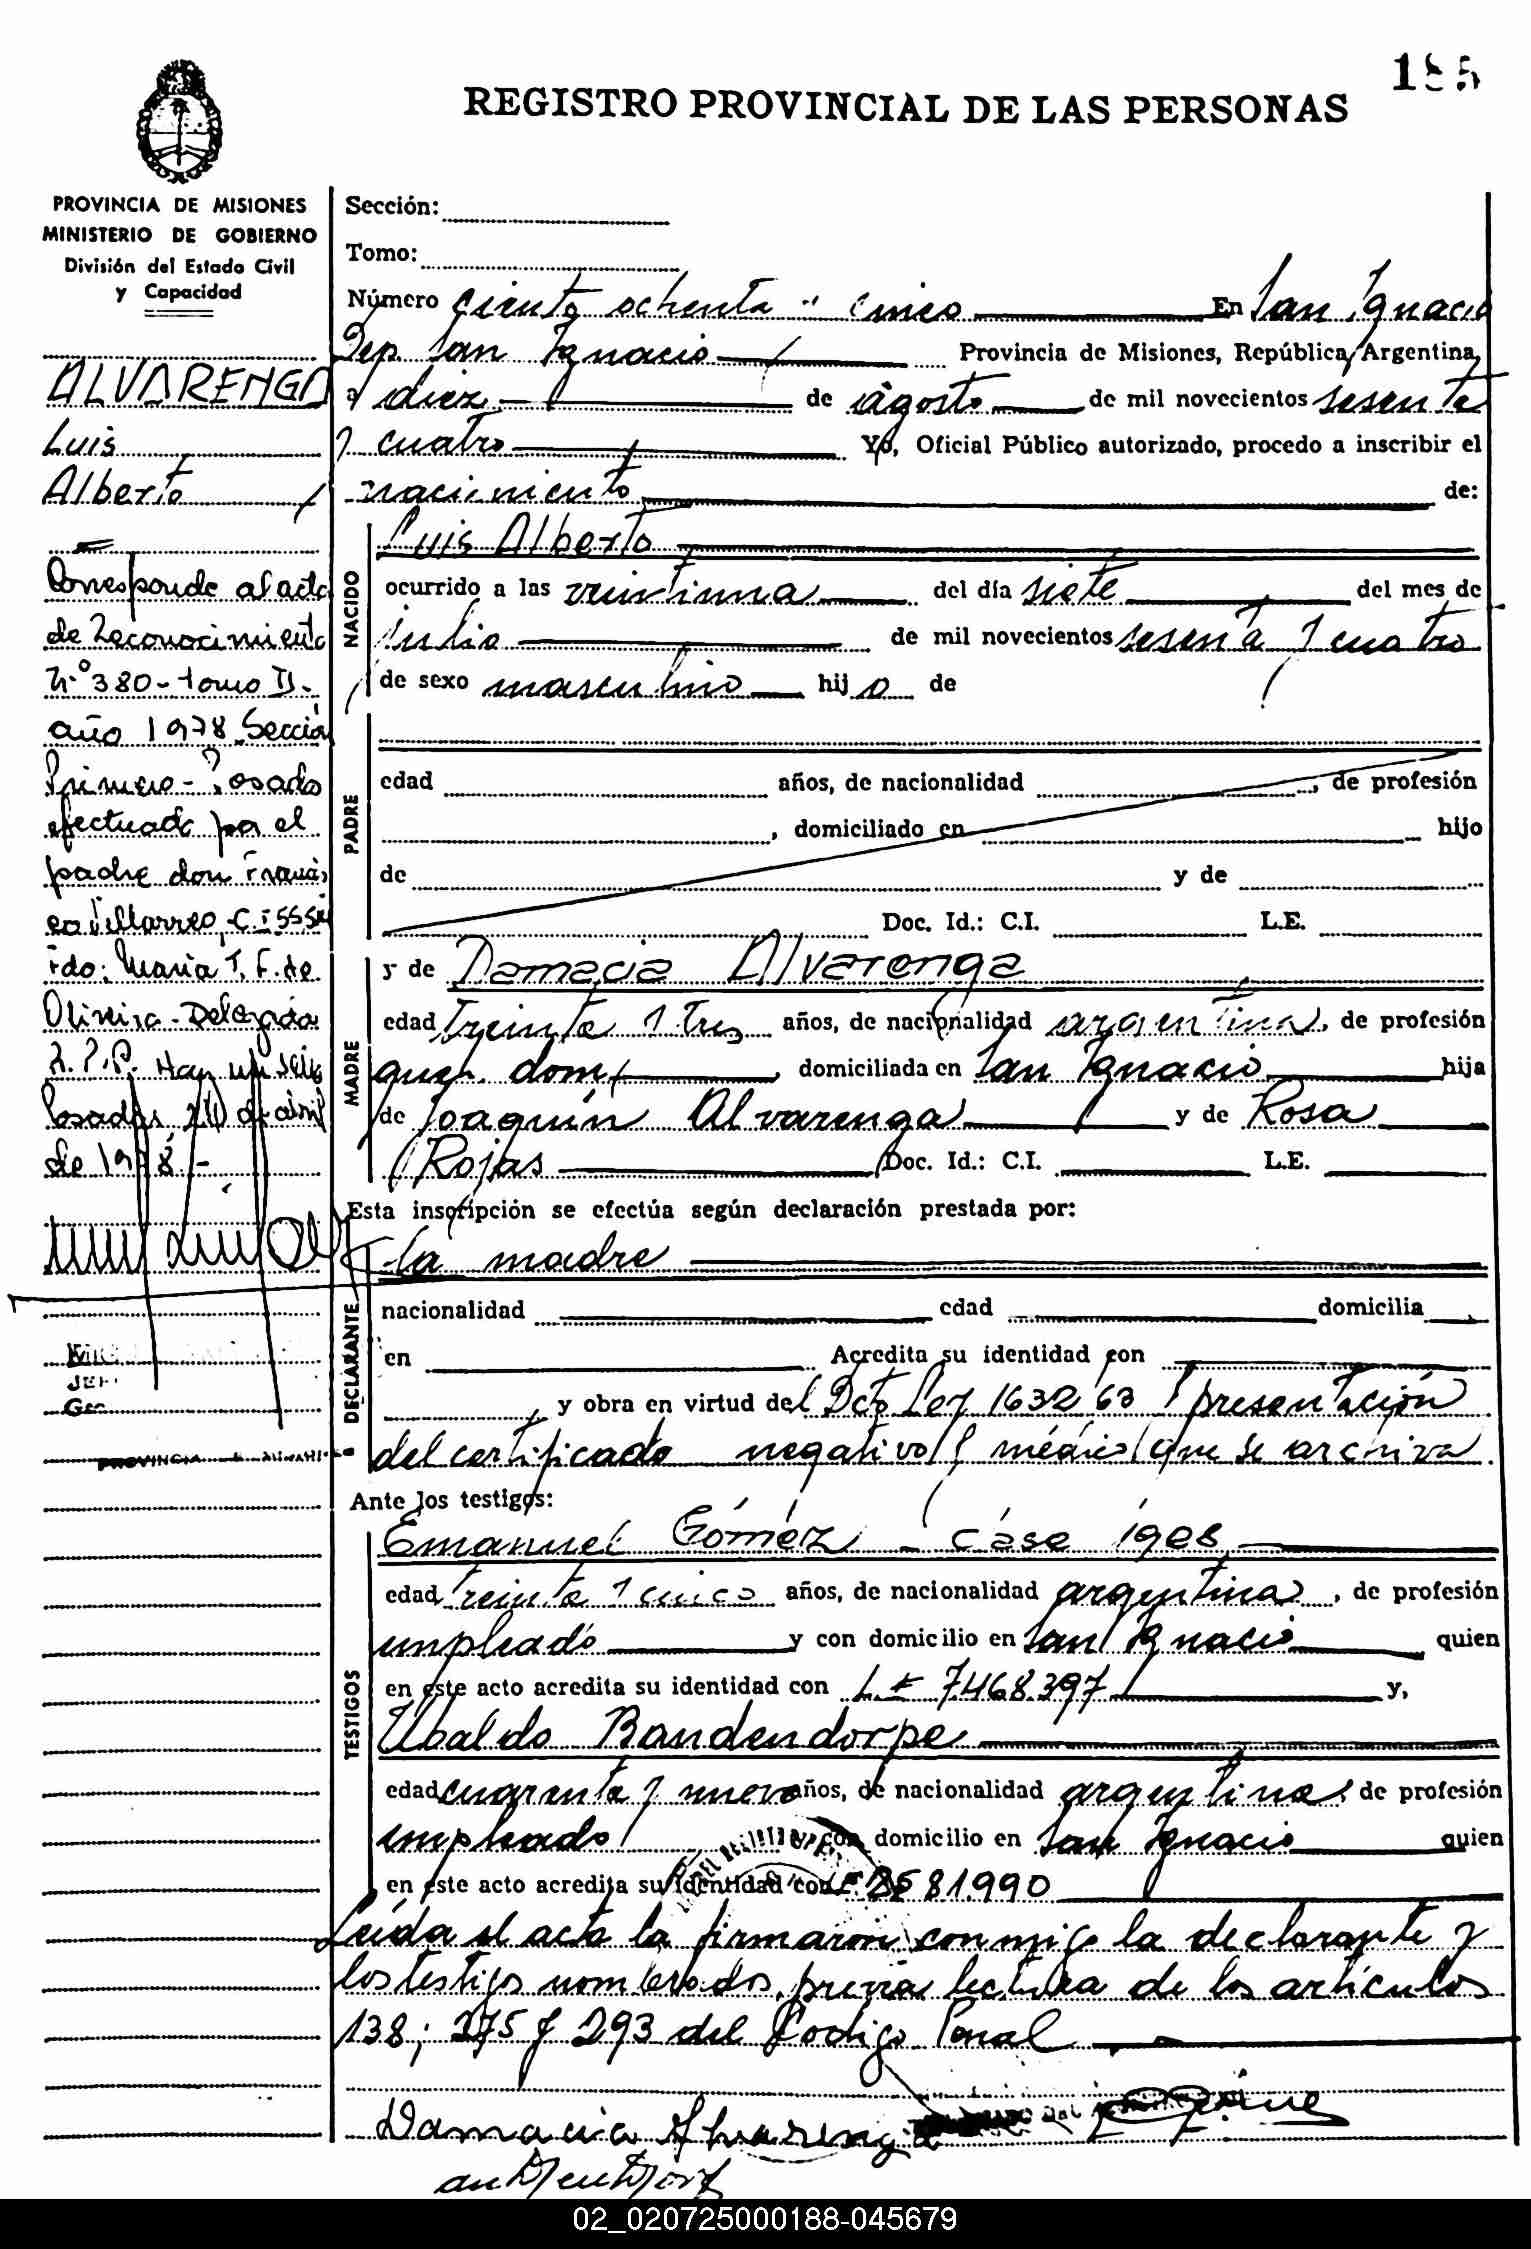 REGISTRO PROVINCIAL DE LAS PERSONAS
PROVINCIA DE MISIONES
MINISTERIO DE GOBIERNO
División del Estado Civil
y Capacidad
ALVARENGA
Luis
Alberto
Corresponde al acta
de Reconocimiento
N.º 380 - tomo II -
año 1978 Sección
Primera - Posadas
efectuado por el
padre don Francis
co Villarreo, C.I
Fdo: Maria T. F. de
Oliveira - Delegada
R.P.P. Hay un sello
Posadas 24 de abril
de 1978 -
PROVINCIA
Sección:
Tomo:
Número ciento ochenta y cinco En San Ignacio
Dep. San Ignacio Provincia de Misiones, República Argentina,
a diez de agosto de mil novecientos sesenta
y cuatro Yo, Oficial Público autorizado, procedo a inscribir el
nacimiento de:
NACIDO
Luis Alberto
ocurrido a las veintiuna del día siete del mes de
julio de mil novecientos sesenta y cuatro
de sexo masculino hijo de
PADRE
edad años, de nacionalidad , de profesión
, domiciliado en hijo
de y de
Doc. Id.: C.I. L.E.
MADRE
y de Damacia Alvarenga
edad treinta y tres años, de nacionalidad argentina, de profesión
queh. dom. , domiciliada en San Ignacio hija
de Joaquín Alvarenga y de Rosa
Rojas Doc. Id.: C.I. L.E.
Esta inscripción se efectúa según declaración prestada por:
DECLARANTE
la madre
nacionalidad edad domicilia
en Acredita su identidad con
y obra en virtud del Dcto Ley 1632/63 y presentación
del certificado negativo y médico que se archiva
Ante los testigos:
TESTIGOS
Emanuel Gómez - clase 1928
edad treinta y cinco años, de nacionalidad argentina, de profesión
empleado y con domicilio en San Ignacio quien
en este acto acredita su identidad con L.E 7.468.397 y,
Ubaldo Bandendorpe
edad cuarenta y nueve años, de nacionalidad argentina, de profesión
empleado y con domicilio en San Ignacio quien
en este acto acredita su identidad con L.E. 2581.990
Leída el acta la firmaron conmigo la declarante y
los testigos nombrados, previa lectura de los artículos
138; 275 y 293 del Codigo Penal
Damacia Alvarenga
02_020725000188-045679